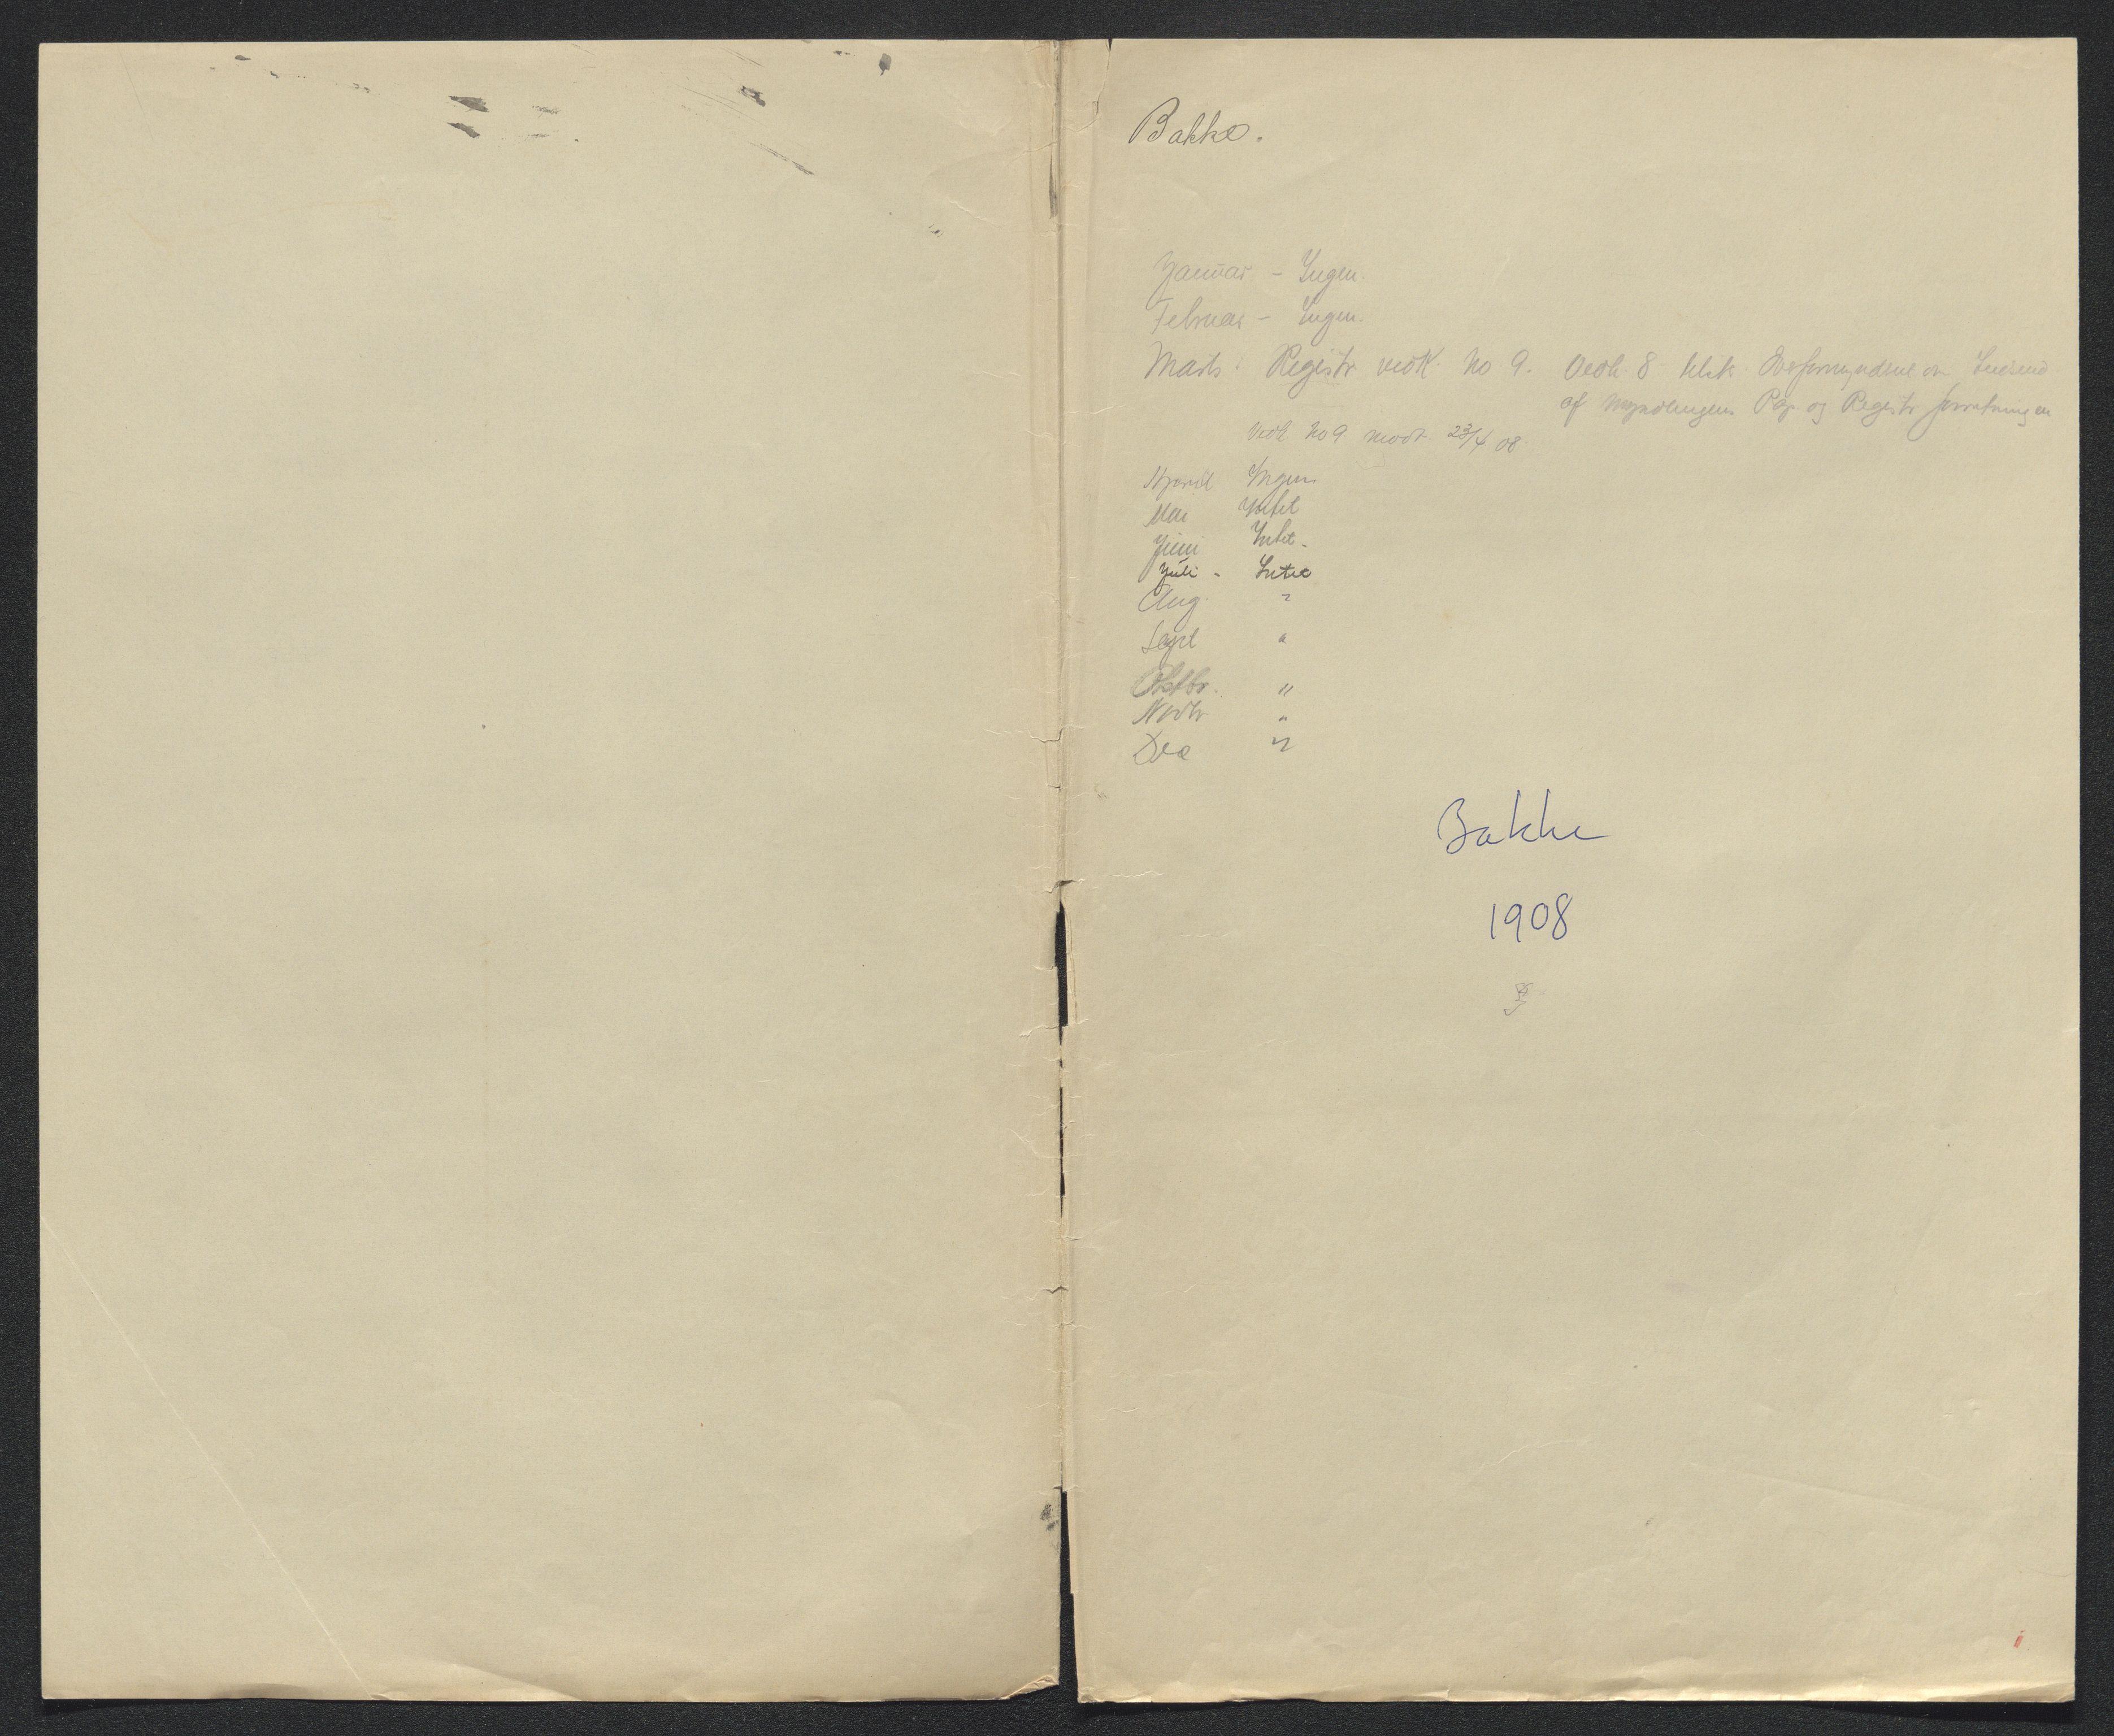 Bakke.
Januar - Ingen.
Februar - Ingen.
Marts: Registr vedk. No 9. Vedk. 8 tilsk. Overformynderne om Indsend
af Myndlingens Pap og Registr forretningen
Vedk No 9 modt. 23/4 08
April Ingen
Mai Intet
Juni Intet -
Juli - Intet
Aug. "
Sept "
Oktbr. "
Novbr "
Dec "
Bakke
1908